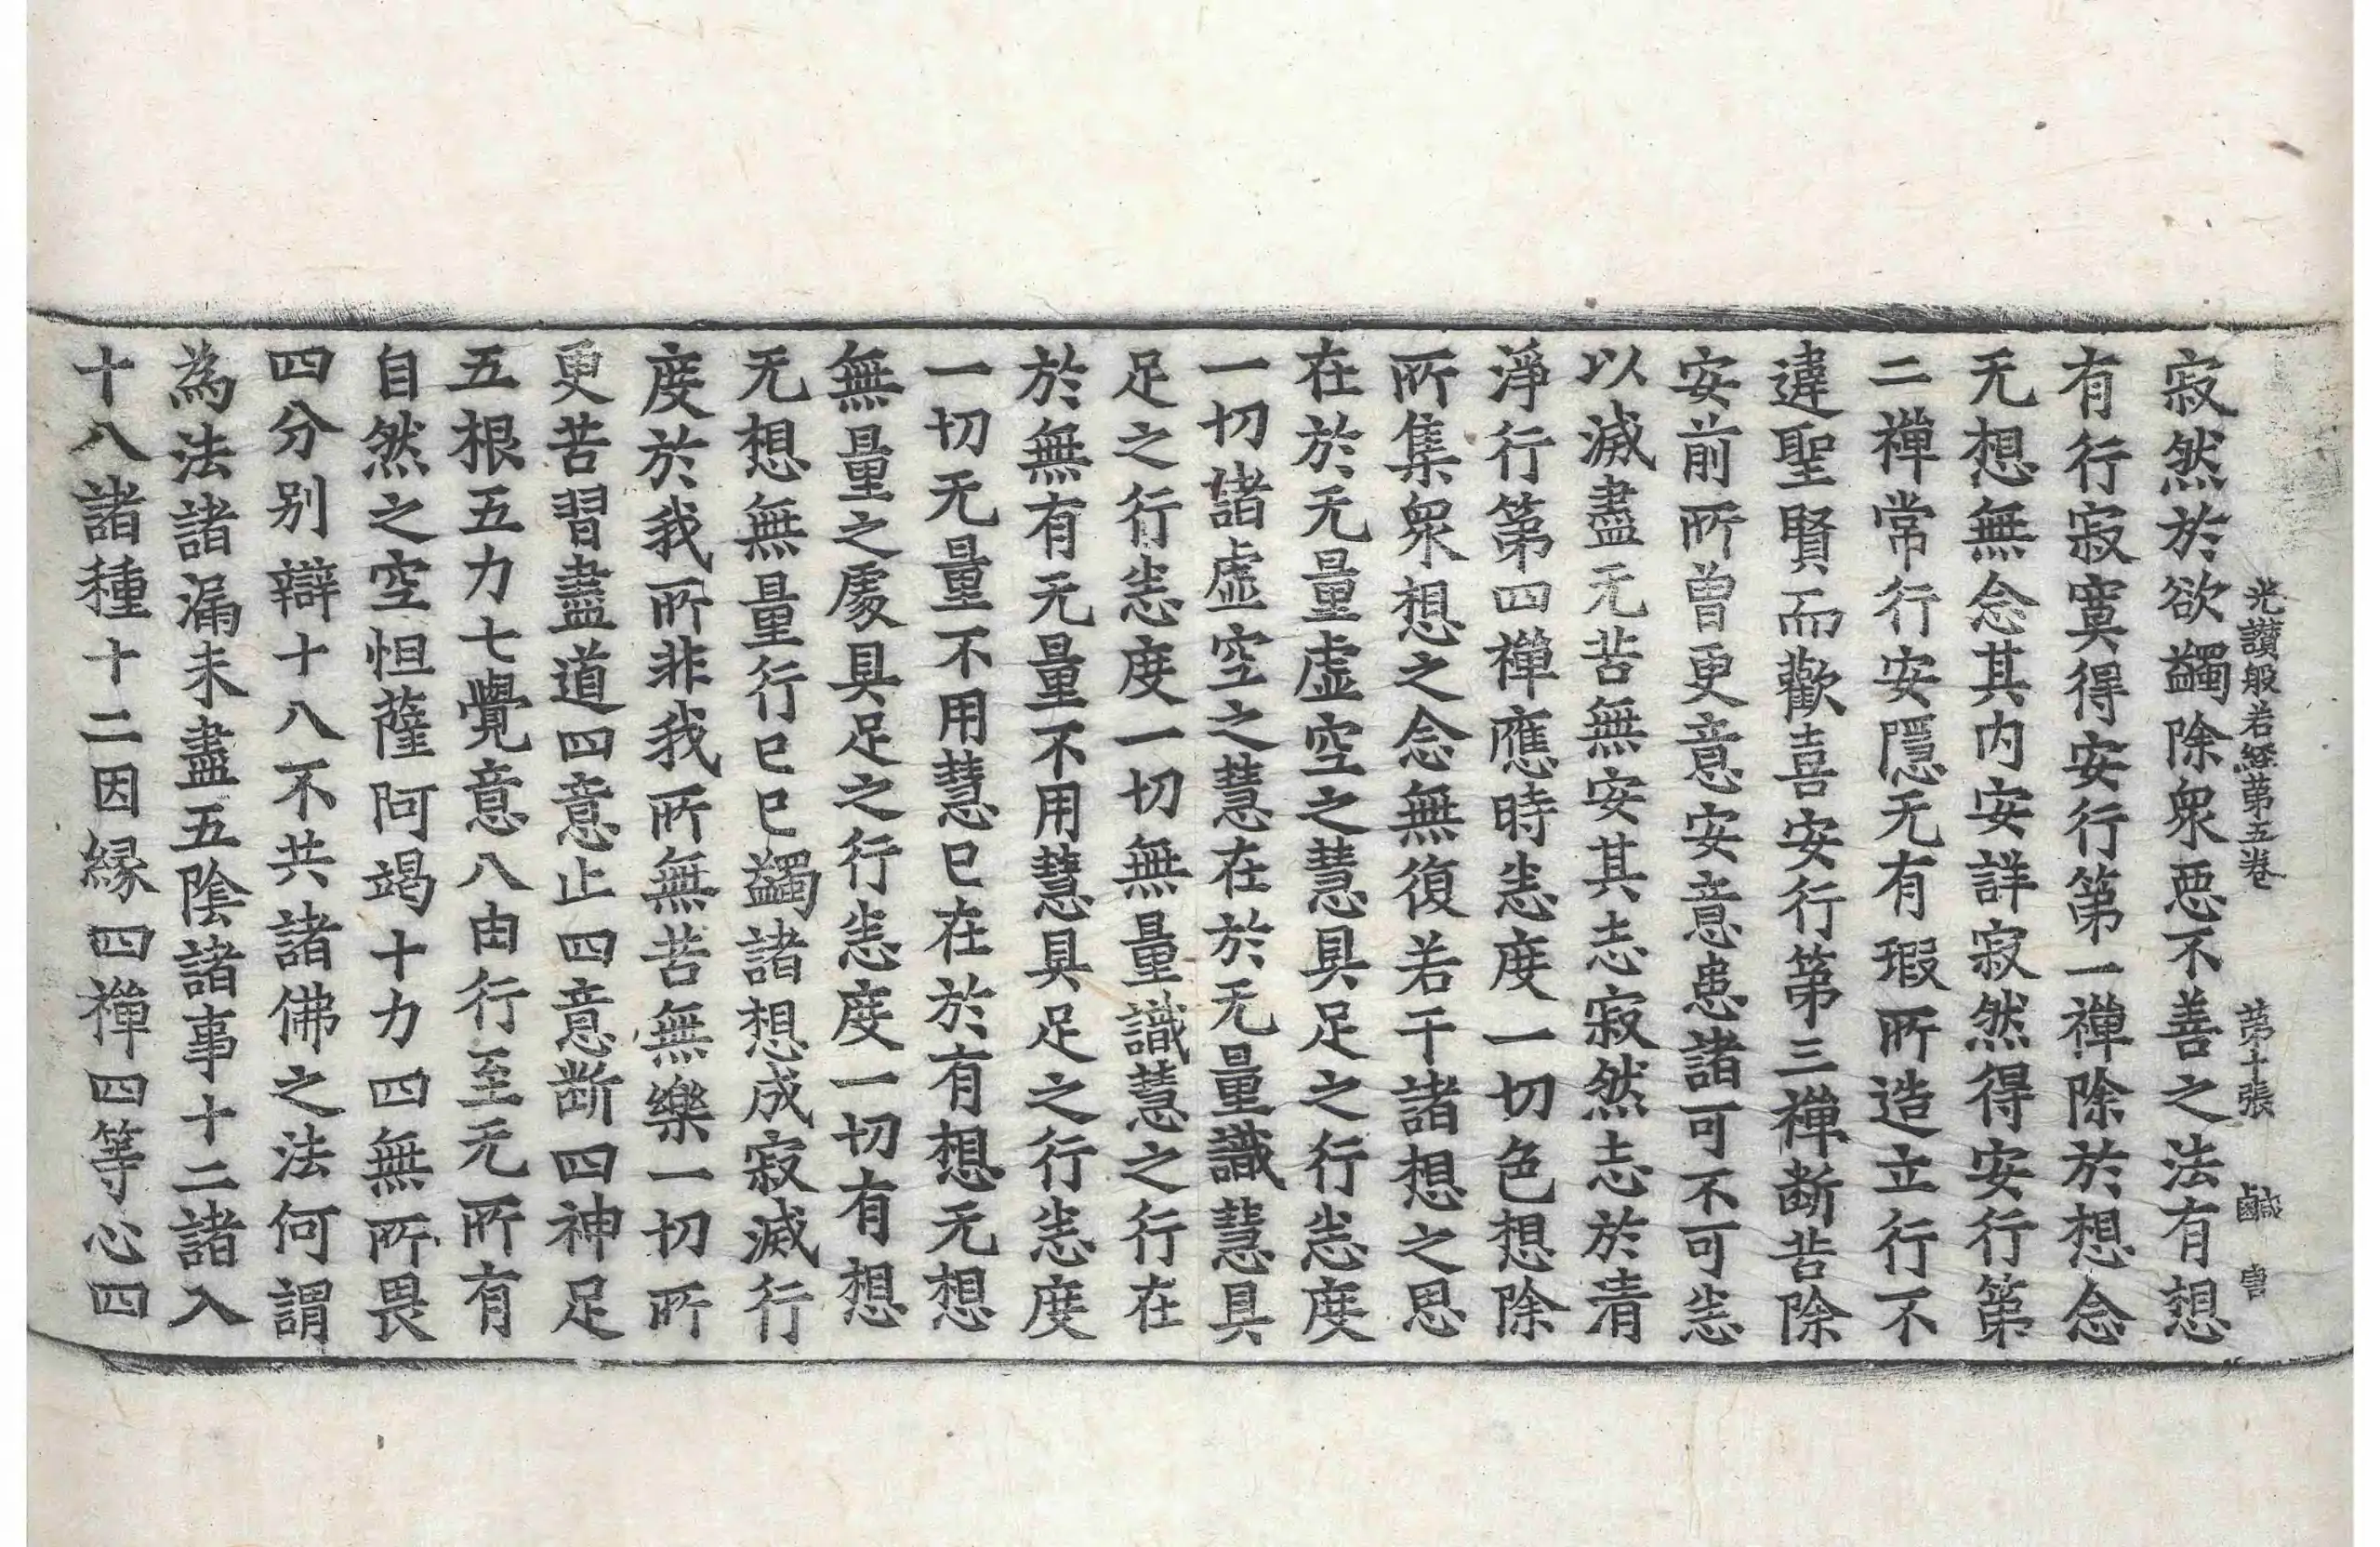 光讃般若經第五卷 第十張 鹹
寂然於欲蠲除衆惡不善之法有想
有行寂寞得安行第一禪除於想念
无想無念其內安詳寂然得安行第
二禪常行安隱无有瑕所造立行不
違聖賢而歡喜安行第三禪斷苦除
安前所曾更意安意患諸可不可恙
以滅盡无苦無安其志寂然志於清
淨行第四禪應時恙度一切色想除
所集衆想之念無復若干諸想之思
在於无量虛空之慧具足之行恙度
一切諸虛空之慧在於无量識慧具
足之行恙度一切無量識慧之行在
於無有无量不用慧具足之行恙度
一切无量不用慧已在於有想无想
無量之處具足之行恙度一切有想
无想無量行已已蠲諸想成寂滅行
度於我所非我我所無苦無樂一切所
更苦習盡道四意止四意斷四神足
五根五力七覺意八由行至无所有
自然之空怛薩阿竭十力四無所畏
四分别辯十八不共諸佛之法何謂
為法諸漏未盡五陰諸事十二諸入
十八諸種十二因緣四禪四等心四